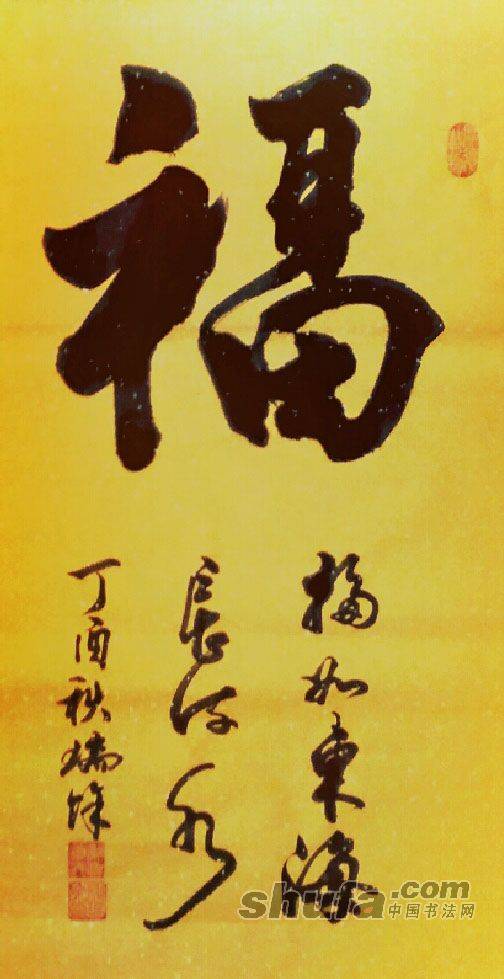 福
福如東海
長流水
丁酉秋瑞
shufa.com
中国书法网